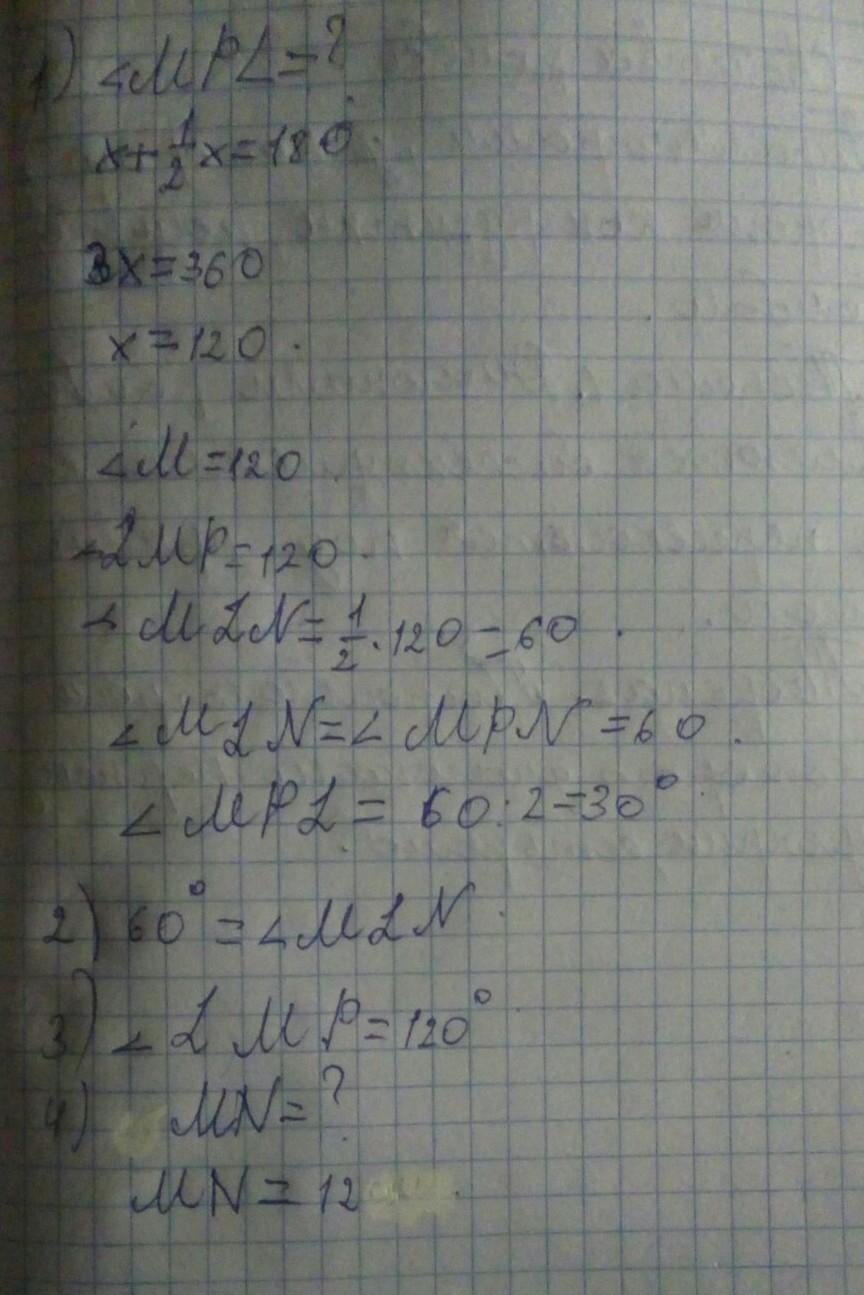 1) ∠MPL=?
x+1/2x=180
3x=360
x=120.
∠M=120
∠LMP=120.
∠MLN=1/2·120=60.
∠MLN=∠MPN=60.
∠MPL=60:2=30°
2) 60°=∠MLN
3) ∠LMP=120°
4) MN=?
MN=12